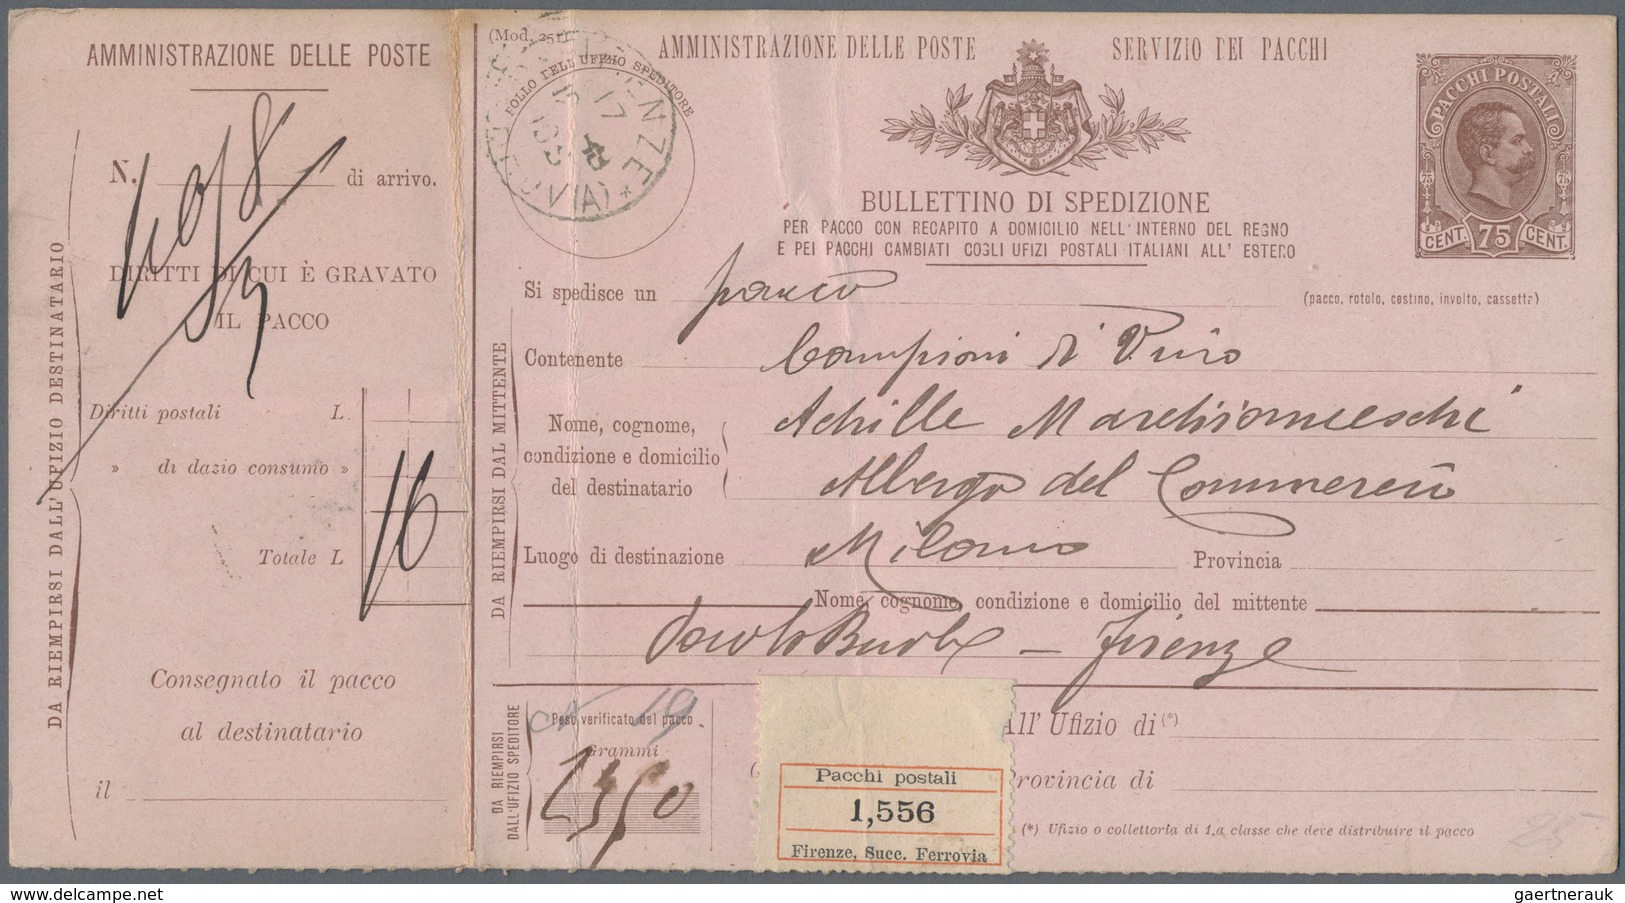 AMMINISTRAZIONE DELLE POSTE
N. di arrivo.
DIRITTI DI CUI È GRAVATO
IL PACCO
Diritti postali L.
» di dazio consumo »
16
Totale L
Consegnato il pacco
al destinatario
il
DA RIEMPIRSI DALL'UFIZIO DESTINATARIO
(Mod. 251)
BOLLO DELL'UFIZIO SPEDITORE
AMMINISTRAZIONE DELLE POSTE SERVIZIO DEI PACCHI
PACCHI POSTALI
75 75
CENT. 75 CENT.
BULLETTINO DI SPEDIZIONE
PER PACCO CON RECAPITO A DOMICILIO NELL'INTERNO DEL REGNO
E PEI PACCHI CAMBIATI COGLI UFIZI POSTALI ITALIANI ALL'ESTERO
Si spedisce un pacco (pacco, rotolo, cestino, involto, cassetta)
DA RIEMPIRSI DAL MITTENTE
Contenente Campioni di Vino
Nome, cognome,
condizione e domicilio
del destinatario
Achille
Albergo del Commercio
Luogo di destinazione Milano Provincia
Nome, cognome, condizione e domicilio del mittente
Paolo – Firenze
DA RIEMPIRSI
DALL'UFIZIO SPEDITORE
N 19
Peso verificato del pacco
Grammi
All' Ufizio di (*)
Provincia di
(*) Ufizio o collettoria di 1.a classe che deve distribuire il pacco
Pacchi postali
1,556
Firenze, Succ. Ferrovia
25
delcampe.net
gaertnerauk